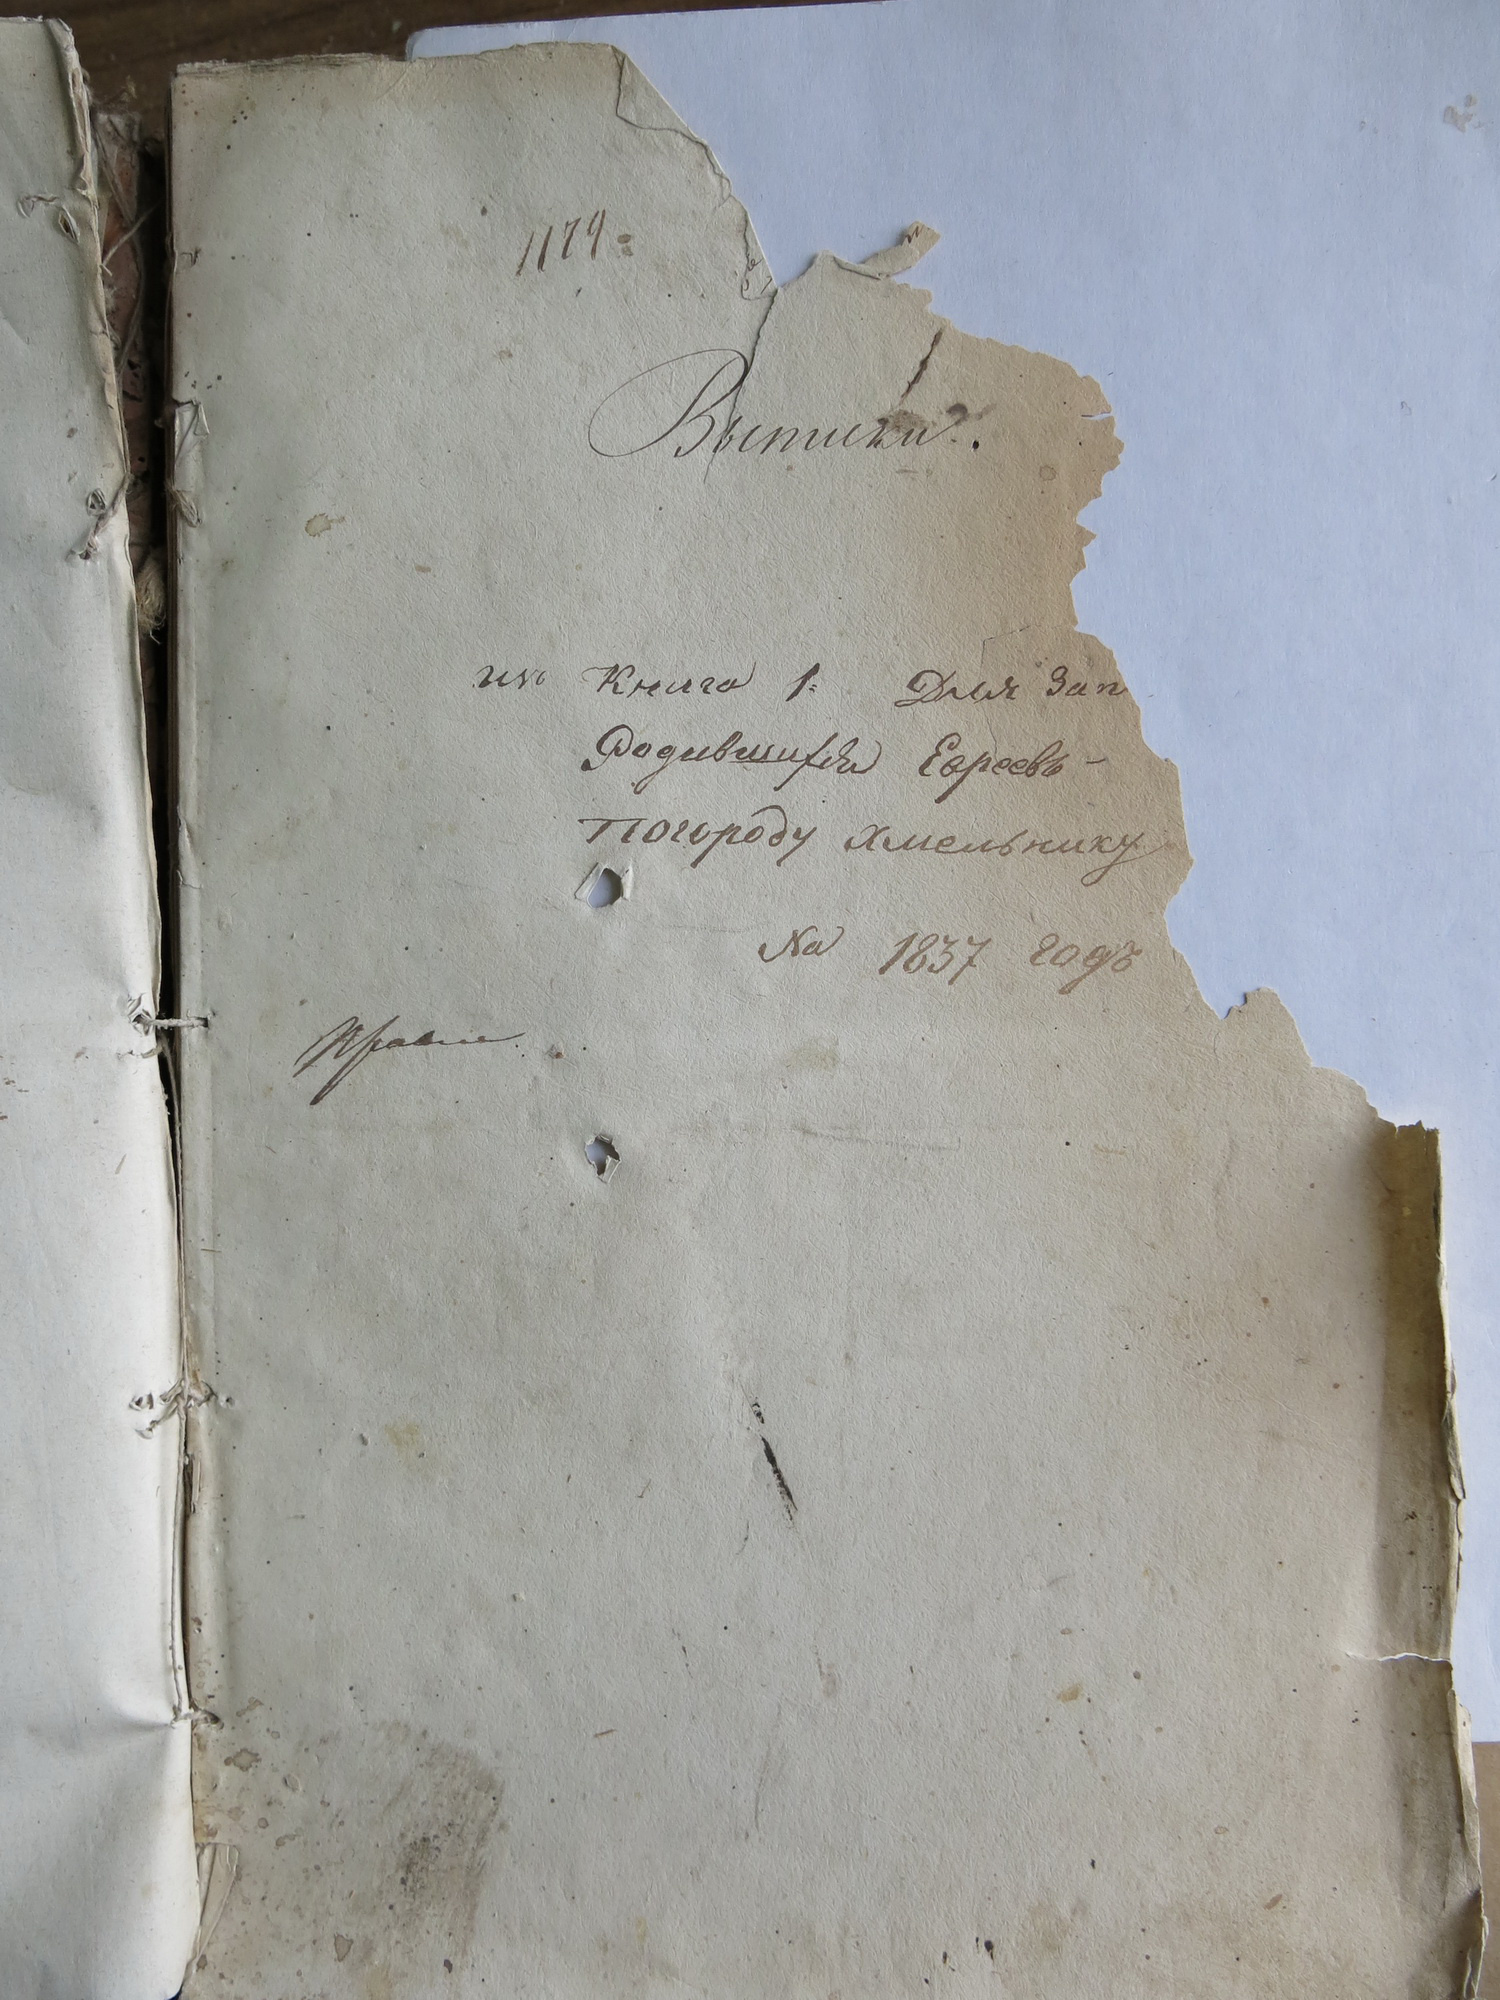 1179.
Выписки.
изъ Книга 1. Для Зап
Родившихся Евреевъ -
Погороду Хмельнику
На 1837 годъ